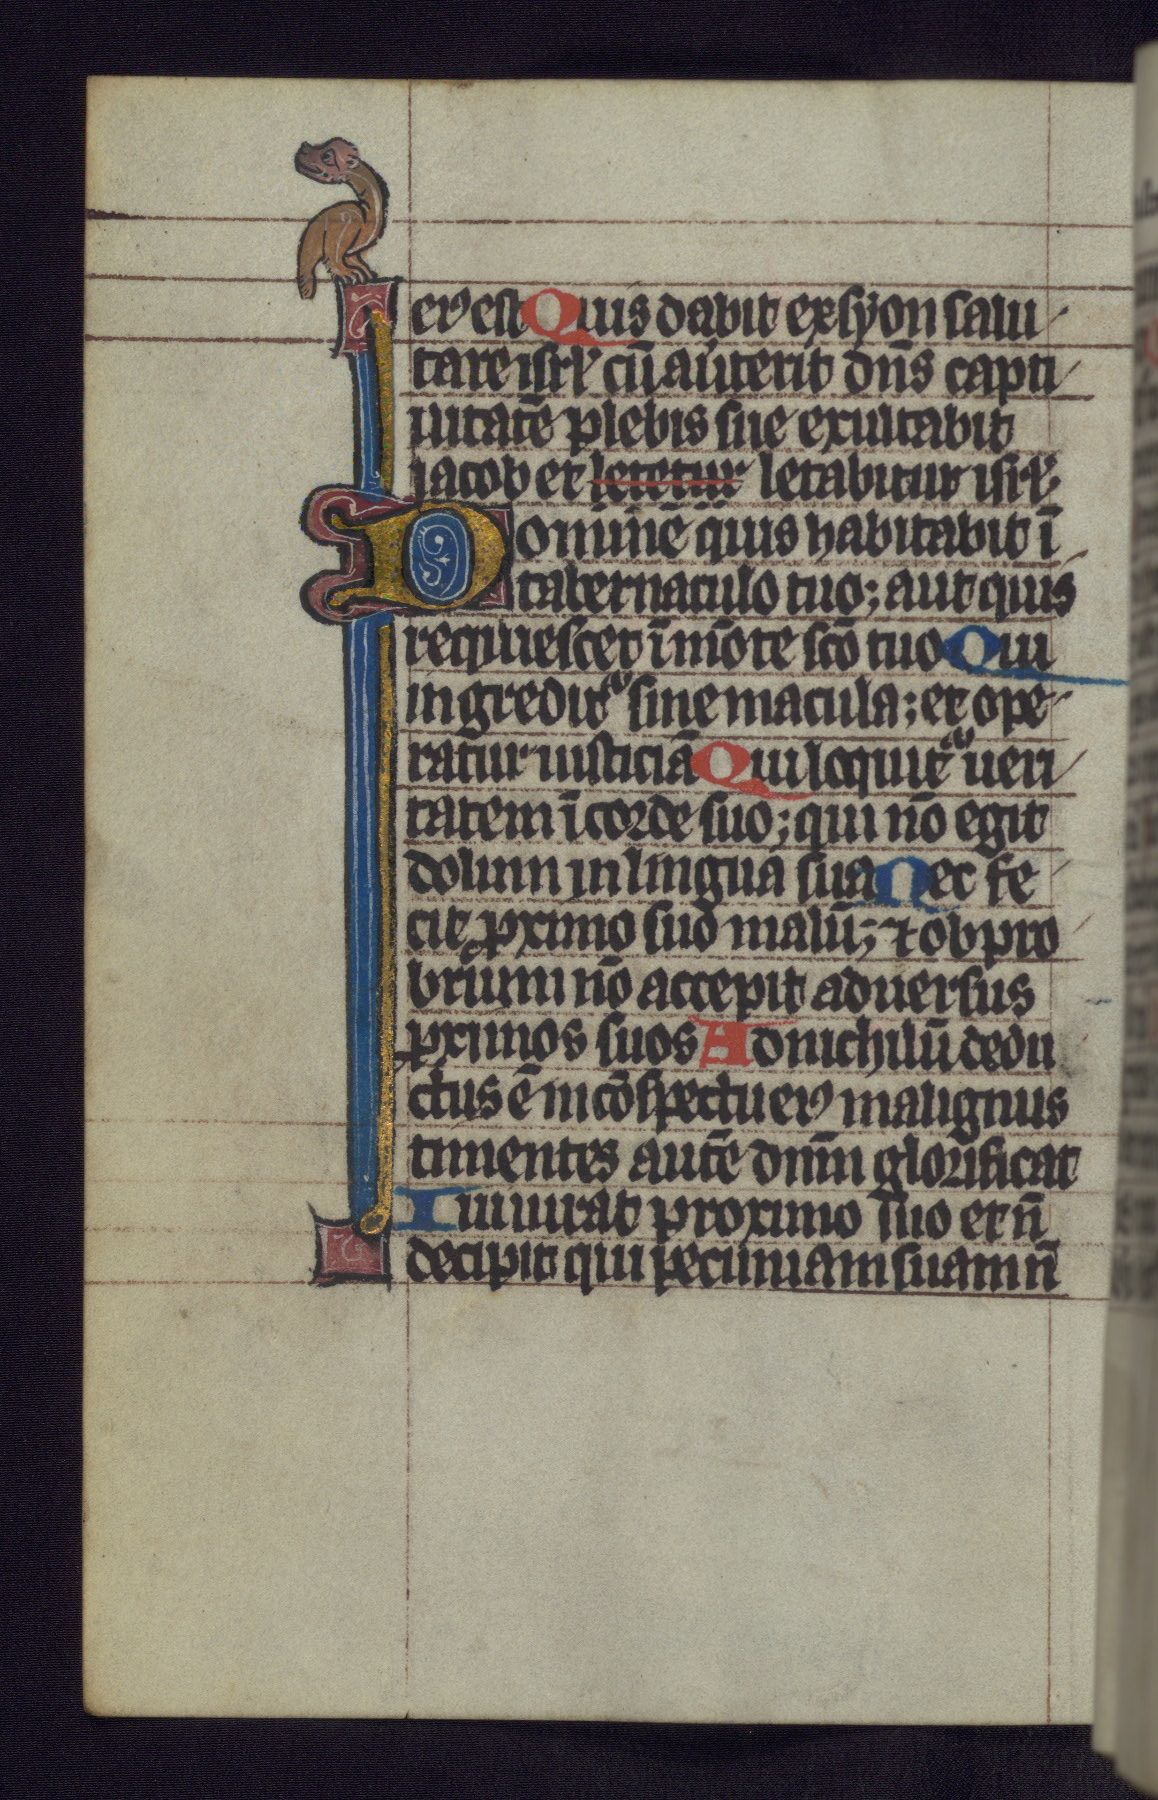 erꝰ est Quis dabit ex syon salu
tare isrl̕ cū auerterit dn̄s capti
uitatē plebis sue exultabit
jacob et letetur letabitur isrl̕.
Domine quis habitabit ī
tabernaculo tuo; aut quis
requiescet ī mōte scō tuo Qui
ingreditᷣ sine macula; et ope
ratur iusticiā Qui loquitᷣ ueri
tatem ī corde suo; qui nō egit
dolum in lingua sua Nec fe
cit ꝓximo suo malū; ⁊ obpro
brium nō accepit aduersus
ꝓximos suos Ad nichilū dedu
ctus ē in cōspectu eiꝰ malignus
timentes autē dn̄m glorificat
Qui iurat proximo suo et n̄
decipit qui pecuniam suam n̄